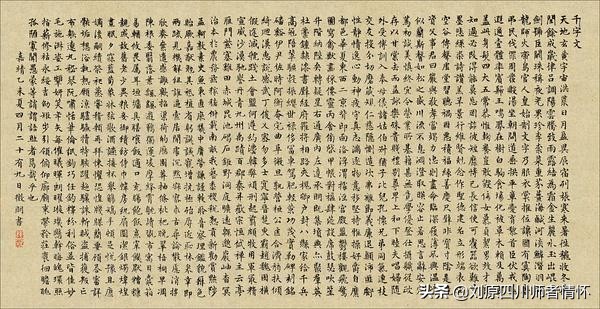 千字文
天地玄黃宇宙洪荒日月盈昃辰宿列張寒來暑往秋收冬藏
閏餘成歲律呂調陽雲騰致雨露結為霜金生麗水玉出崑岡
劍號巨闕珠稱夜光果珍李柰菜重芥薑海鹹河淡鱗潛羽翔
龍師火帝鳥官人皇始制文字乃服衣裳推位讓國有虞陶唐
弔民伐罪周發殷湯坐朝問道垂拱平章愛育黎首臣伏戎羌
遐邇壹體率賓歸王鳴鳳在樹白駒食場化被草木賴及萬方
蓋此身髮四大五常恭惟鞠養豈敢毀傷女慕貞絜男效才良
知過必改得能莫忘罔談彼短靡恃己長信使可覆器欲難量
墨悲絲染詩讚羔羊景行維賢剋念作聖德建名立形端表正
空谷傳聲虛堂習聽禍因惡積福緣善慶尺璧非寶寸陰是競
資父事君曰嚴與敬孝當竭力忠則盡命臨深履薄夙興溫凊
似蘭斯馨如松之盛川流不息淵澄取映容止若思言辭安定
篤初誠美慎終宜令榮業所基籍甚無竟學優登仕攝職從政
存以甘棠去而益詠樂殊貴賤禮別尊卑上和下睦夫唱婦隨
外受傅訓入奉母儀諸姑伯叔猶子比兒孔懷兄弟同氣連枝
交友投分切磨箴規仁慈隱惻造次弗離節義廉退顛沛匪虧
性靜情逸心動神疲守真志滿逐物意移堅持雅操好爵自縻
都邑華夏東西二京背邙面洛浮渭據涇宮殿盤鬱樓觀飛驚
圖寫禽獸畫綵仙靈丙舍傍啟甲帳對楹肆筵設席鼓瑟吹笙
升階納陛弁轉疑星右通廣內左達承明既集墳典亦聚群英
杜稾鍾隸漆書壁經府羅將相路俠槐卿戶封八縣家給千兵
高冠陪輦驅轂振纓世祿侈富車駕肥輕策功茂實勒碑刻銘
磻溪伊尹佐時阿衡奄宅曲阜微旦孰營桓公匡合濟弱扶傾
綺迴漢惠說感武丁俊乂密勿多士寔寧晉楚更霸趙魏困橫
假途滅虢踐土會盟何遵約法韓弊煩刑起翦頗牧用軍最精
宣威沙漠馳譽丹青九州禹跡百郡秦并嶽宗恒岱禪主云亭
雁門紫塞雞田赤城昆池碣石鉅野洞庭曠遠綿邈巖岫杳冥
治本於農務茲稼穡俶載南畝我藝黍稷稅熟貢新勸賞黜陟
孟軻敦素史魚秉直庶幾中庸勞謙謹敕聆音察理鑑貌辨色
貽厥嘉猷勉其祗植省躬譏誡寵增抗極殆辱近恥林皋幸即
兩疏見機解組誰逼索居閒處沉默寂寥求古尋論散慮逍遙
欣奏累遣慼謝歡招渠荷的歷園莽抽條枇杷晚翠梧桐早凋
陳根委翳落葉飄颻遊鵾獨運凌摩絳霄耽讀翫市寓目囊箱
易輶攸畏屬耳垣牆具膳餐飯適口充腸飽飫烹宰飢厭糟糠
親戚故舊老少異糧妾御績紡侍巾帷房紈扇圓潔銀燭煒煌
晝眠夕寐藍筍象床弦歌酒讌接杯舉觴矯手頓足悅豫且康
嫡後嗣續祭祀蒸嘗稽顙再拜悚懼恐惶牋牒簡要顧答審詳
骸垢想浴執熱願涼驢騾犢特駭躍超驤誅斬賊盜捕獲叛亡
布射遼丸嵇琴阮嘯恬筆倫紙鈞巧任釣釋紛利俗並皆佳妙
毛施淑姿工顰妍笑年矢每催曦暉朗曜璇璣懸斡晦魄環照
指薪修祜永綏吉劭矩步引領俯仰廊廟束帶矜莊徘徊瞻眺
孤陋寡聞愚蒙等誚謂語助者焉哉乎也
嘉靖乙未夏四月二十有九日徵明書
头条 @刘原四川师者情怀